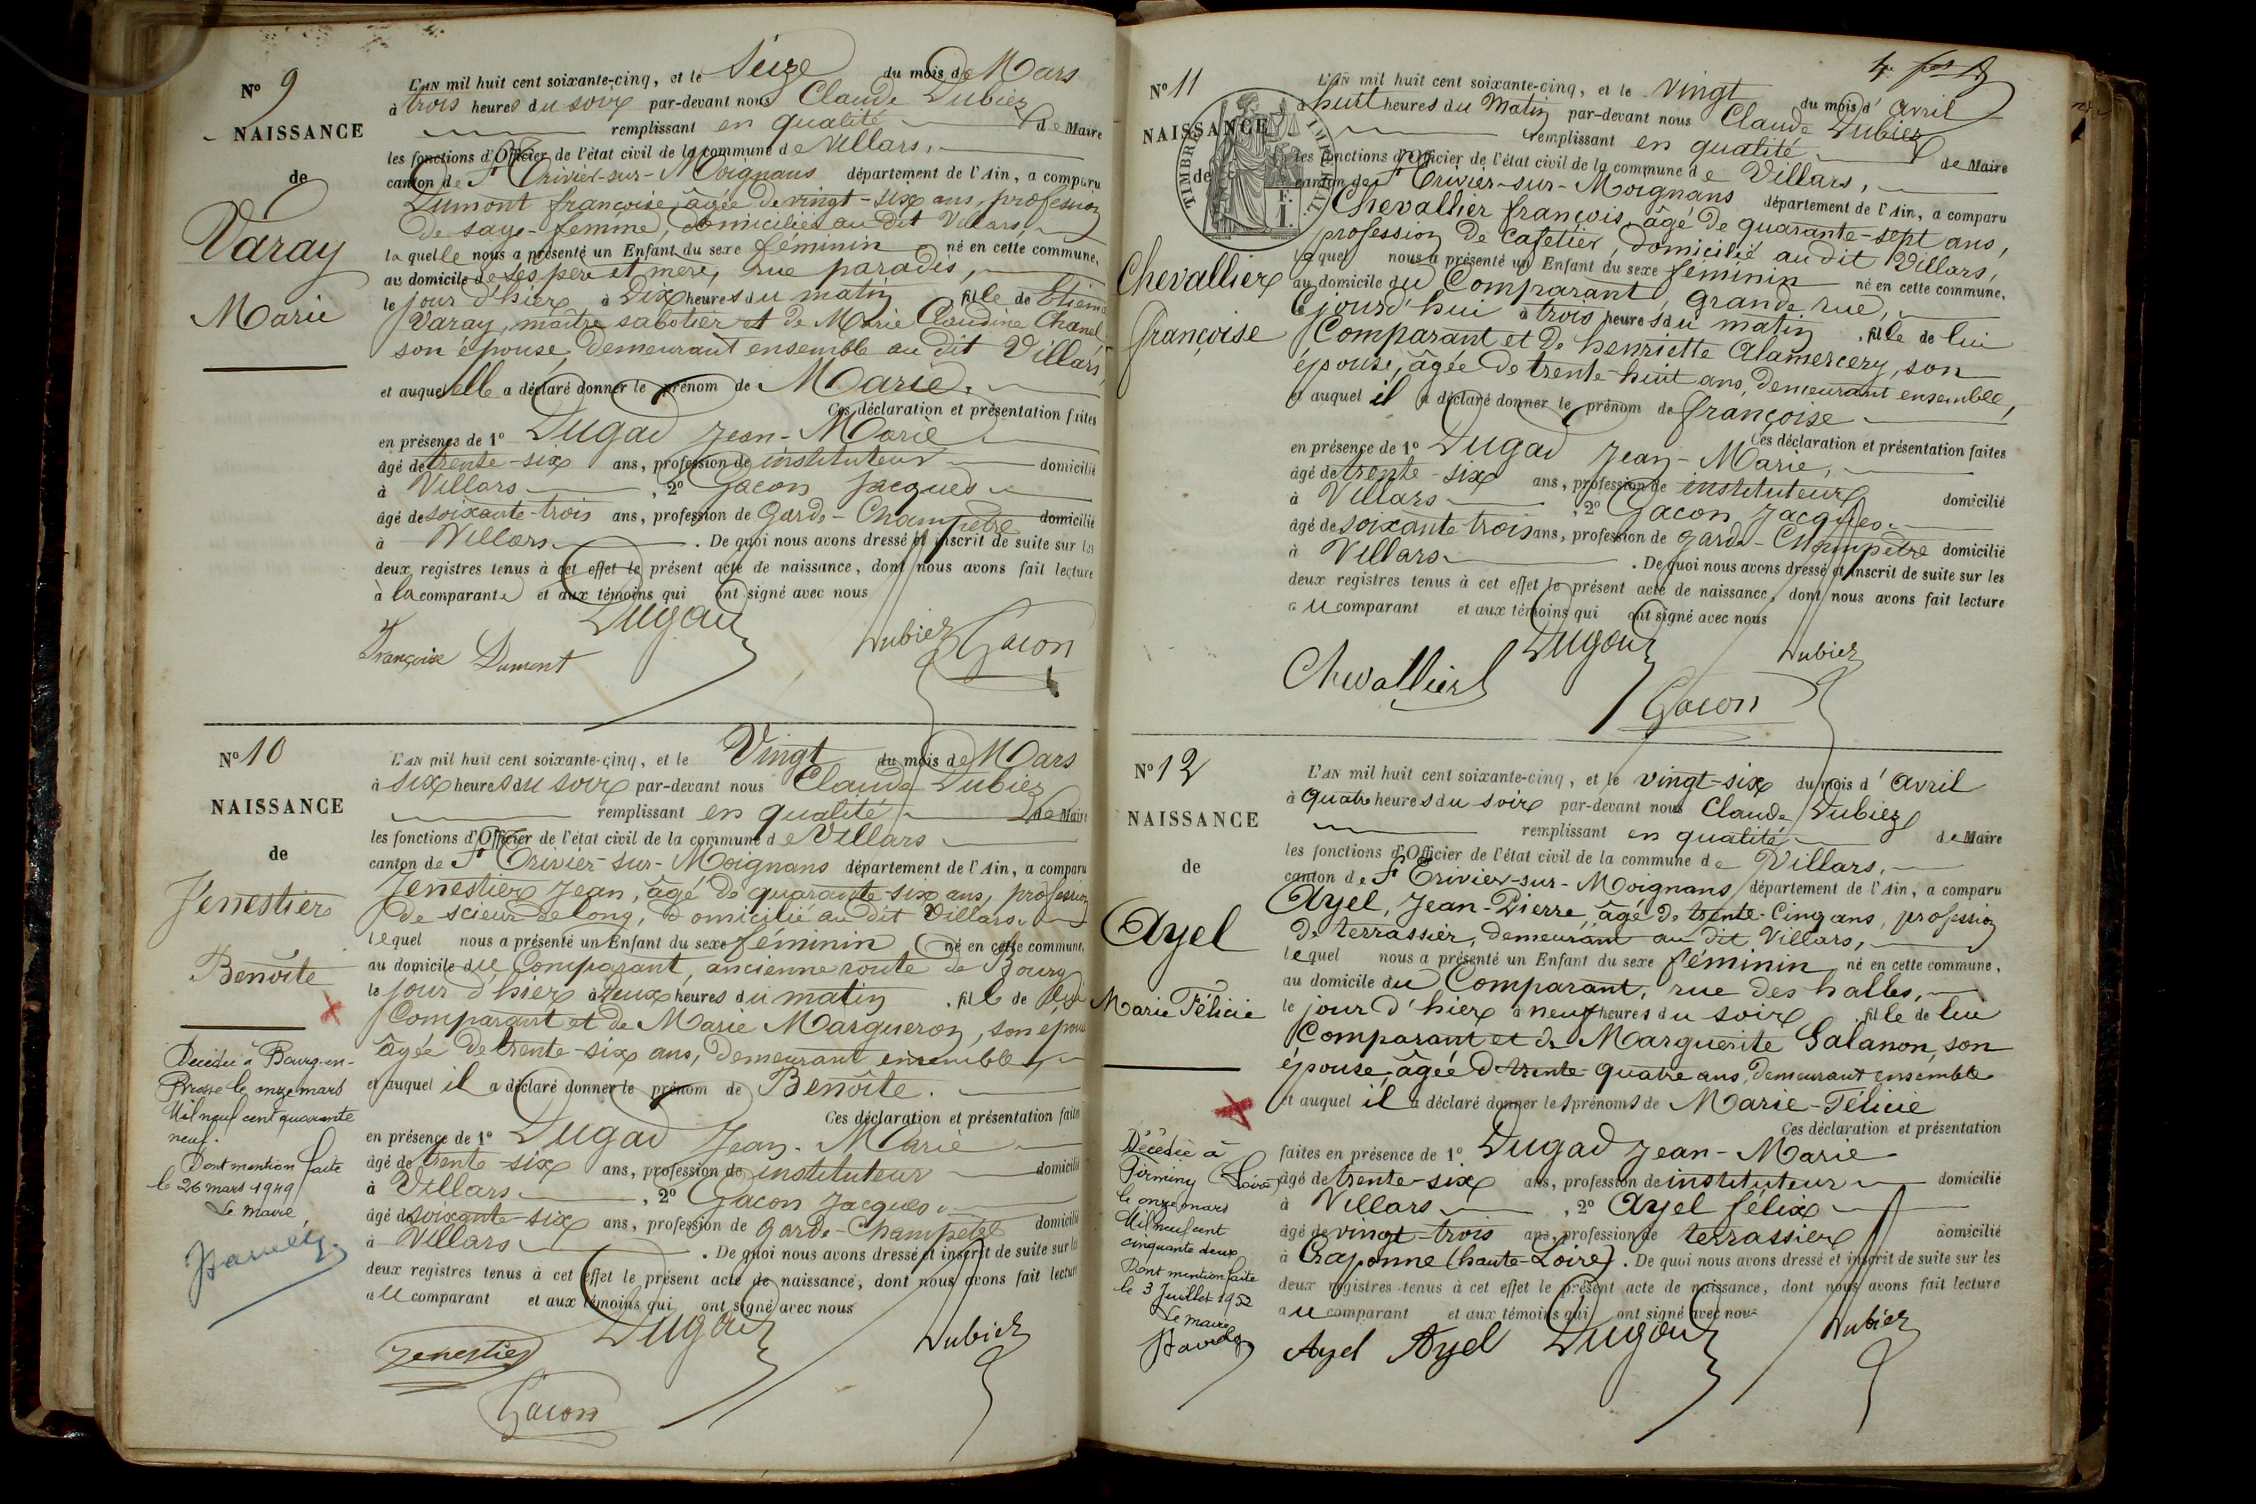 N° 9
NAISSANCE
de
Varay
Marie
L'AN mil huit cent soixante-cinq, et le Seize du mois de Mars
à trois heures du soir par-devant nous Claude Dubiez
remplissant en qualité de Maire
les fonctions d'Officier de l'état civil de la commune de Villars,
canton de St Trivier-sur-Moignans département de l'Ain, a comparu
Dumont françoise, âgée de vingt-six ans, profession
de sage-femme, domiciliée au dit Villars,
laquelle nous a présenté un Enfant du sexe féminin né en cette commune,
au domicile de ses père et mère, rue paradis,
le jour d'hier à Dix heures du matin fille de Etienne
Varay, maître sabotier et de Marie Claudine Chanel
son épouse, demeurant ensemble au dit Villars,
et auquel elle a déclaré donner le prénom de Marie.
Ces déclaration et présentation faites
en présence de 1° Dugad Jean-Marie
âgé de trente-six ans, profession de instituteur domicilié
à Villars, 2° Gacon Jacques
âgé de soixante-trois ans, profession de Garde-Champêtre domicilié
à Villars. De quoi nous avons dressé et inscrit de suite sur les
deux registres tenus à cet effet le présent acte de naissance, dont nous avons fait lecture
à la comparante et aux témoins qui ont signé avec nous
Françoise Dumont Dugad Dubiez Gacon
N° 10
NAISSANCE
de
Jenestier
Benoîte
Décédée à Bourg-en-
Bresse le onze mars
Mil neuf cent quarante
neuf.
Dont mention faite
le 26 mars 1949
Le maire,
L'AN mil huit cent soixante-cinq, et le Vingt du mois de Mars
à six heures du soir par-devant nous Claude Dubiez
remplissant en qualité de Maire
les fonctions d'Officier de l'état civil de la commune de Villars
canton de St Trivier-sur-Moignans département de l'Ain, a comparu
Jenestier Jean, âgé de quarante-six ans, profession
de scieur de long, domicilié au dit Villars.
lequel nous a présenté un Enfant du sexe féminin né en cette commune,
au domicile du Comparant, ancienne route de Bourg
le jour d'hier à deux heures du matin. fille de
Comparant et de Marie Margueron, son épouse
âgée de trente-six ans, demeurant ensemble,
et auquel il a déclaré donner le prénom de Benoîte.
Ces déclaration et présentation faites
en présence de 1° Dugad Jean-Marie
âgé de trente-six ans, profession de instituteur domicilié
à Villars, 2° Gacon Jacques
âgé de soixante-six ans, profession de Garde-Champêtre domicilié
à Villars. De quoi nous avons dressé et inscrit de suite sur les
deux registres tenus à cet effet le présent acte de naissance, dont nous avons fait lecture
au comparant et aux témoins qui ont signé avec nous
Jenestier Dugad Dubiez
Gacon
N° 11
NAISSANCE
de
TIMBRE IMPÉRIAL
Chevallier
françoise
L'AN mil huit cent soixante-cinq, et le vingt du mois d'avril
à huit heures du Matin par-devant nous Claude Dubiez
remplissant en qualité de Maire
les fonctions d'Officier de l'état civil de la commune de Villars,
canton de St Trivier-sur-Moignans département de l'Ain, a comparu
Chevallier françois, âgé de quarante-sept ans,
profession de cafetier, domicilié au dit Villars,
lequel nous a présenté un Enfant du sexe féminin né en cette commune,
au domicile du Comparant, Grande rue,
Cejourd'hui à trois heures du matin. fille de lui
Comparant et de henriette Alamercery, son
épouse, âgée de trente-huit ans, demeurant ensemble,
et auquel il a déclaré donner le prénom de françoise
Ces déclaration et présentation faites
en présence de 1° Dugad Jean-Marie,
âgé de trente-six ans, profession de instituteur domicilié
à Villars, 2° Gacon Jacques
âgé de soixante trois ans, profession de garde-Champêtre domicilié
à Villars. De quoi nous avons dressé et inscrit de suite sur les
deux registres tenus à cet effet le présent acte de naissance, dont nous avons fait lecture
au comparant et aux témoins qui ont signé avec nous
Chevallier Dugad Dubiez
Gacon
N° 12
NAISSANCE
de
Ayel
Marie Félicie
Décédée à
Firminy (Loire)
le onze mars
Mil neuf cent
cinquante deux
Dont mention faite
le 3 Juillet 1952
Le maire
L'AN mil huit cent soixante-cinq, et le vingt-six du mois d'avril
à quatre heures du soir par-devant nous Claude Dubiez
remplissant en qualité de Maire
les fonctions d'Officier de l'état civil de la commune de Villars,
canton de St Trivier-sur-Moignans département de l'Ain, a comparu
Ayel, Jean-Pierre, âgé de trente-cinq ans, profession
de terrassier, demeurant au dit Villars,
lequel nous a présenté un Enfant du sexe féminin né en cette commune,
au domicile du Comparant, rue des halles,
le jour d'hier à neuf heures du soir. fille de lui
Comparant et de Marguerite Galanon, son
épouse, âgée de trente-quatre ans, demeurant ensemble
et auquel il a déclaré donner les prénoms de Marie-Félicie
Ces déclaration et présentation
faites en présence de 1° Dugad Jean-Marie
âgé de trente-six ans, profession de instituteur domicilié
à Villars, 2° Ayel félix
âgé de vingt-trois ans, profession de terrassier domicilié
à Craponne (haute-Loire). De quoi nous avons dressé et inscrit de suite sur les
deux registres tenus à cet effet le présent acte de naissance, dont nous avons fait lecture
au comparant et aux témoins qui ont signé avec nous
Ayel Ayel Dugad Dubiez